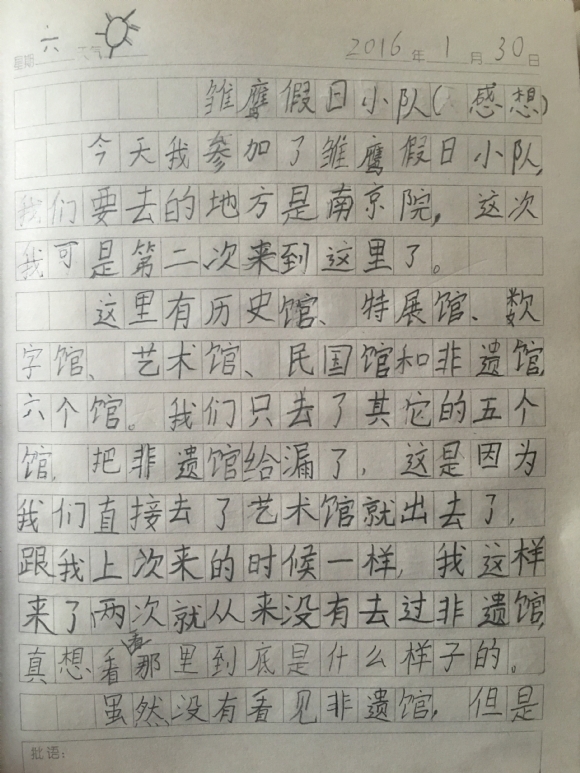 星期 六 天气 2016 年 1 月 30 日
雏鹰假日小队(感想)
今天我参加了雏鹰假日小队,
我们要去的地方是南京院,这次
我可是第二次来到这里了。
这里有历史馆、特展馆、数
字馆、艺术馆、民国馆和非遗馆
六个馆。我们只去了其它的五个
馆,把非遗馆给漏了,这是因为
我们直接去了艺术馆就出去了,
跟我上次来的时候一样,我这样
来了两次就从来没有去过非遗馆,
真想看看那里到底是什么样子的。
虽然没有看见非遗馆,但是
批语: